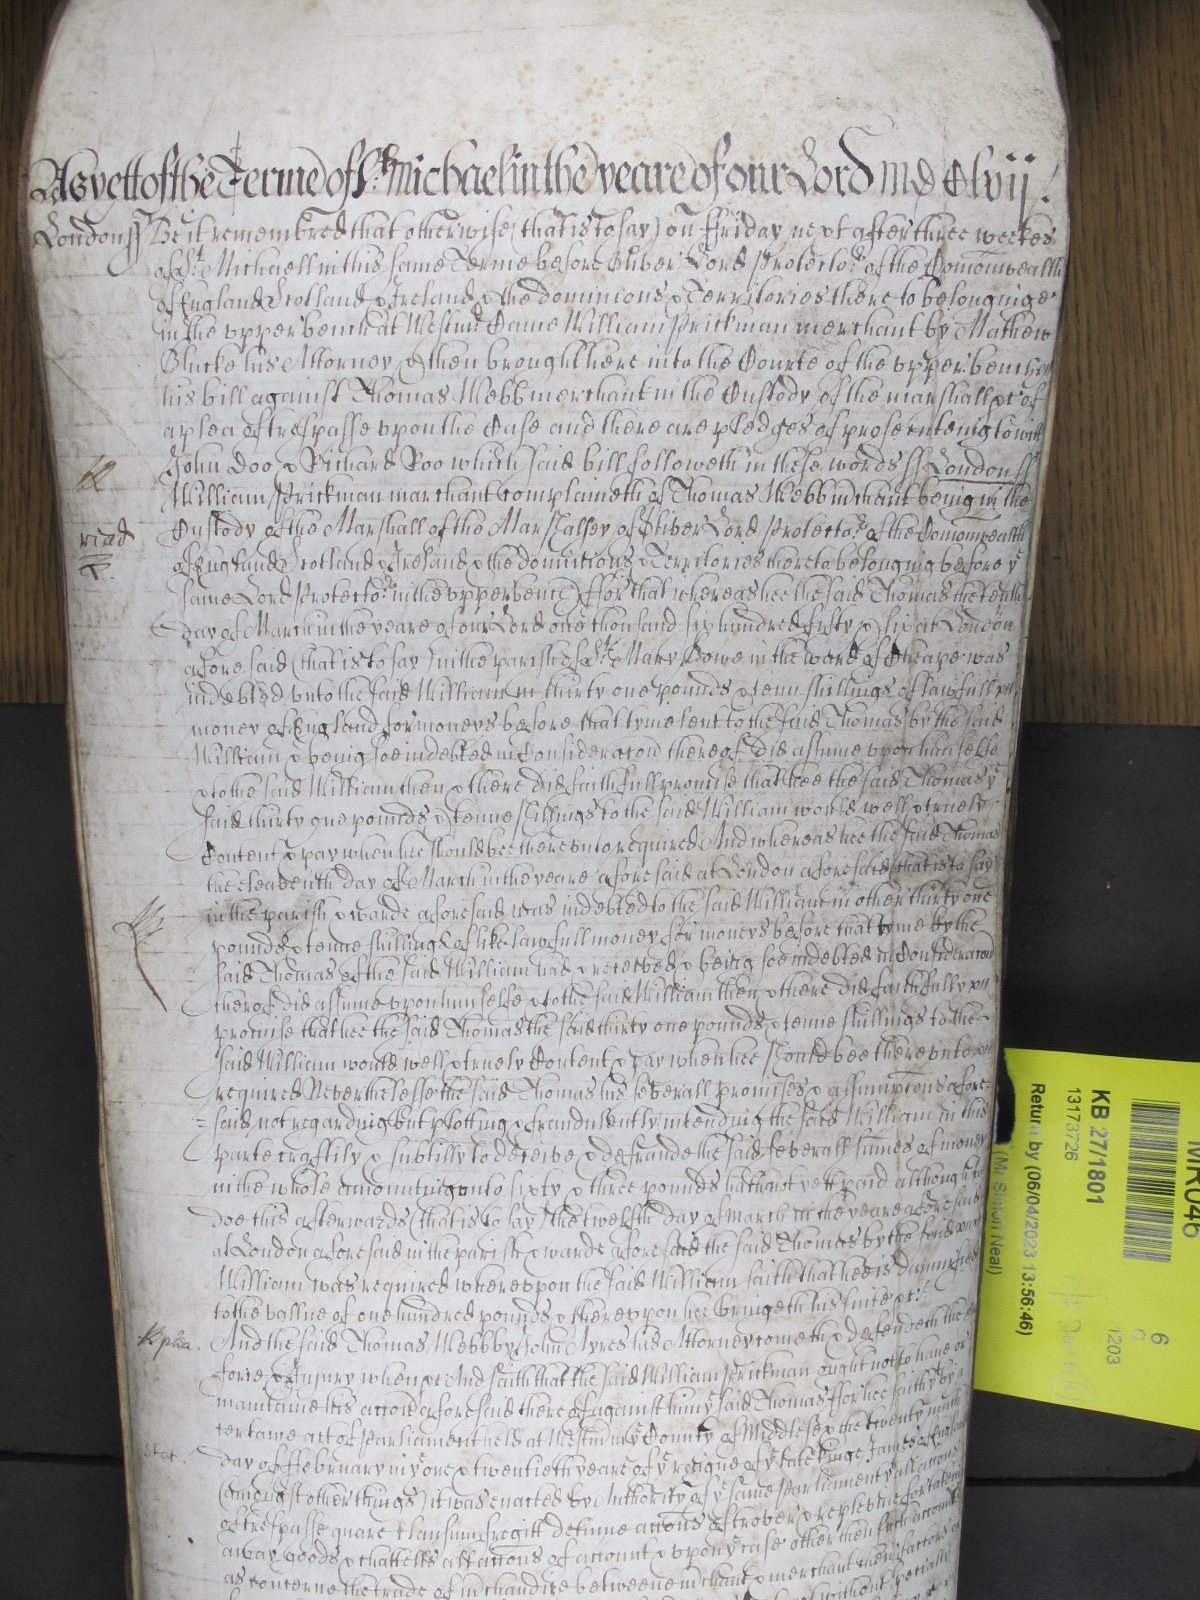 As yett of the Terme of St. Michael in the yeare of our Lord MDClvij
London ss Be it remembred that otherwise (that is to say) on ffriday next after three weekes
of St. Michaell in this same Terme before Oliver Lord Protector of the Comonwealth
of England Scotland & Ireland & the dominions & Territories thereto belonginge
in the upper bench at Westmr Came William Prickman merchant by Mathew
his Attorney & then brought here into the Courte of the upper bench
his bill against Thomas Webb merchant in the Custody of the marshall &c of
a plea of trespasse upon the Case and there are pledges of prosecuteing to witt
John Doo & Richard Roo which said bill followeth in these words ss London ss
William Prickman marchant complaineth of Thomas Webb mchant being in the
Custody of the Marshall of the Marshalsey of Oliver Lord Protector of the Comonwealth
of England Scotland & Ireland & the dominions & Territories thereto belonging before ye
same Lord Protector in the upper bench ffor that whereas hee the said Thomas the tenth
day of March in the yeare of our Lord one thousand six hundred fifty & six at London
aforesaid (that is to say) in the parish of St. Mary Bowe in the ward of Cheape was
indebted unto the said William in thirty one pounds & tenn shillings of lawfull
money of England for moneys before that tyme lent to the said Thomas by the said
William & being soe indebted in Consideracon thereof did assume upon himselfe
& to the said William then & there did faithfull promise that hee the said Thomas ye
said thirty one pounds & tenne shillings to the said William would well & truely
Content & pay when hee should bee thereunto required And whereas hee the said Thomas
the eleaventh day of March in the yeare aforesaid at London aforesaid (that is to say)
in the parish & warde aforesaid was indebted to the said William in other thirty one
pounds & tenne shillings of like lawfull money for moneys before that tyme by the
said Thomas of the said William had & received & being soe indebted in Consideracon
thereof did assume upon himselfe & to the said William then & there did faithfully
promise that hee the said Thomas the said thirty one pounds & tenne shillings to the
said William would well & truely Content & pay when hee should bee thereunto
required Neverthelesse the said Thomas his severall promises & assumptions afore
said not regarding but plotting & fraudulently intending the said William in this
parte craftily & subtilly to deceive & defraude the said severall sumes of money
in the whole amounting unto sixty & three pounds hath not yett paid although to
doe this afterwards (that is to say) the twelfth day of March in the yeare aforesaid
at London aforesaid in the parish & warde aforesaid the said Thomas by the said
William was required whereupon the said William saith that hee is damnified
to the vallue of one hundred pounds & thereupon hee bringeth his suite &c
plea. And the said Thomas Webb by John Ayres his Attorney cometh & defendeth the
force & Injury when &c And saith that the said William Prickman ought not to have or
maintaine his accon aforesaid thereof against him ye said Thomas ffor hee saith yt by a
certaine act of Parliament held at Westmr in ye County of Middlesex the twenty ninth
Stat. day of ffebruary in ye one & twentieth yeare of ye reigne of ye late Kinge James of England
(amongst other things) it was enacted by Authority of ye same Parliament yt all accons
of trespasse quare clausum fregit detinue accons of trover & replevine for takeing
away goods & chattells all accons of account & upon ye case other then such accounts
as concerne the trade of mchandize betweene mchant & merchant their factors or
without specialty
MR046
KB 27/1801
13173726
Return by (06/04/2023 13:56:46)
(Mr Simon Neal)
6
C
1203